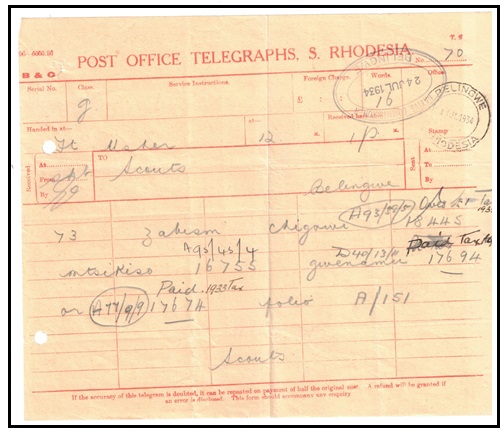 T. 6
POST OFFICE TELEGRAPHS, S. RHODESIA.
70
B & O
Serial No. Class. Service Instructions. Foreign Charge. Words. Office
£ : : 16
24 JUL 1934
BELINGWE
RHODESIA
g
Handed in at— at— Received here at— Stamp
Ft Usher 12 a. 1 p.
Received At From By TO Sent At To By
Scouts
Belingwe
A93/59/5
18445
73 Zabison Chigowi
A95/45/4 D40/13/11 Paid Tax
mtsikiso 16755 17694
Paid 1933 Tax
or A77/9/9 17674 folio A/151
Scouts
If the accuracy of this telegram is doubted, it can be repeated on payment of half the original cost. A refund will be granted if
an error is disclosed. This form should accompany any enquiry